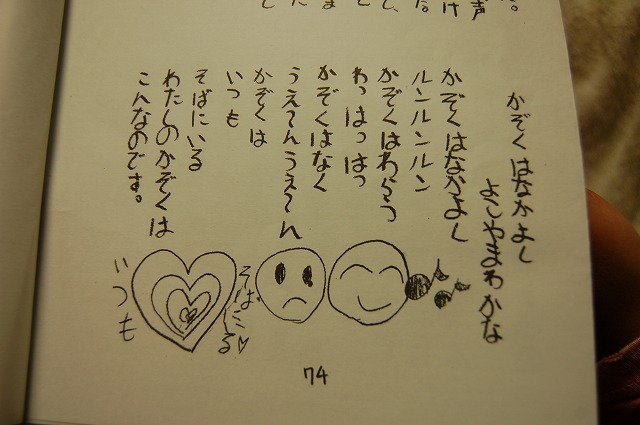 かぞくはなかよし
よこやまわかな
かぞくはなかよし
ルンルンルン
かぞくはわらう
わっはっはっ
かぞくはなく
うえ〜んうえ〜ん
かぞくは
いつも
そばにいる
わたしのかぞくは
こんなのです。
そばにいる♡
いつも
74